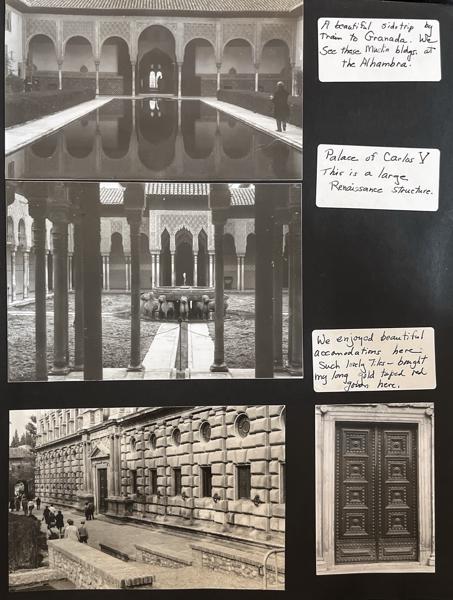 A beautiful sidetrip by
Train to Granada. We
See these Muslim bldgs. at
the Alhambra.
Palace of Carlos V
This is a large
Renaissance structure.
We enjoyed beautiful
accomodations here.
Such lovely Tiles - bought
my long gold taped red
gown here.